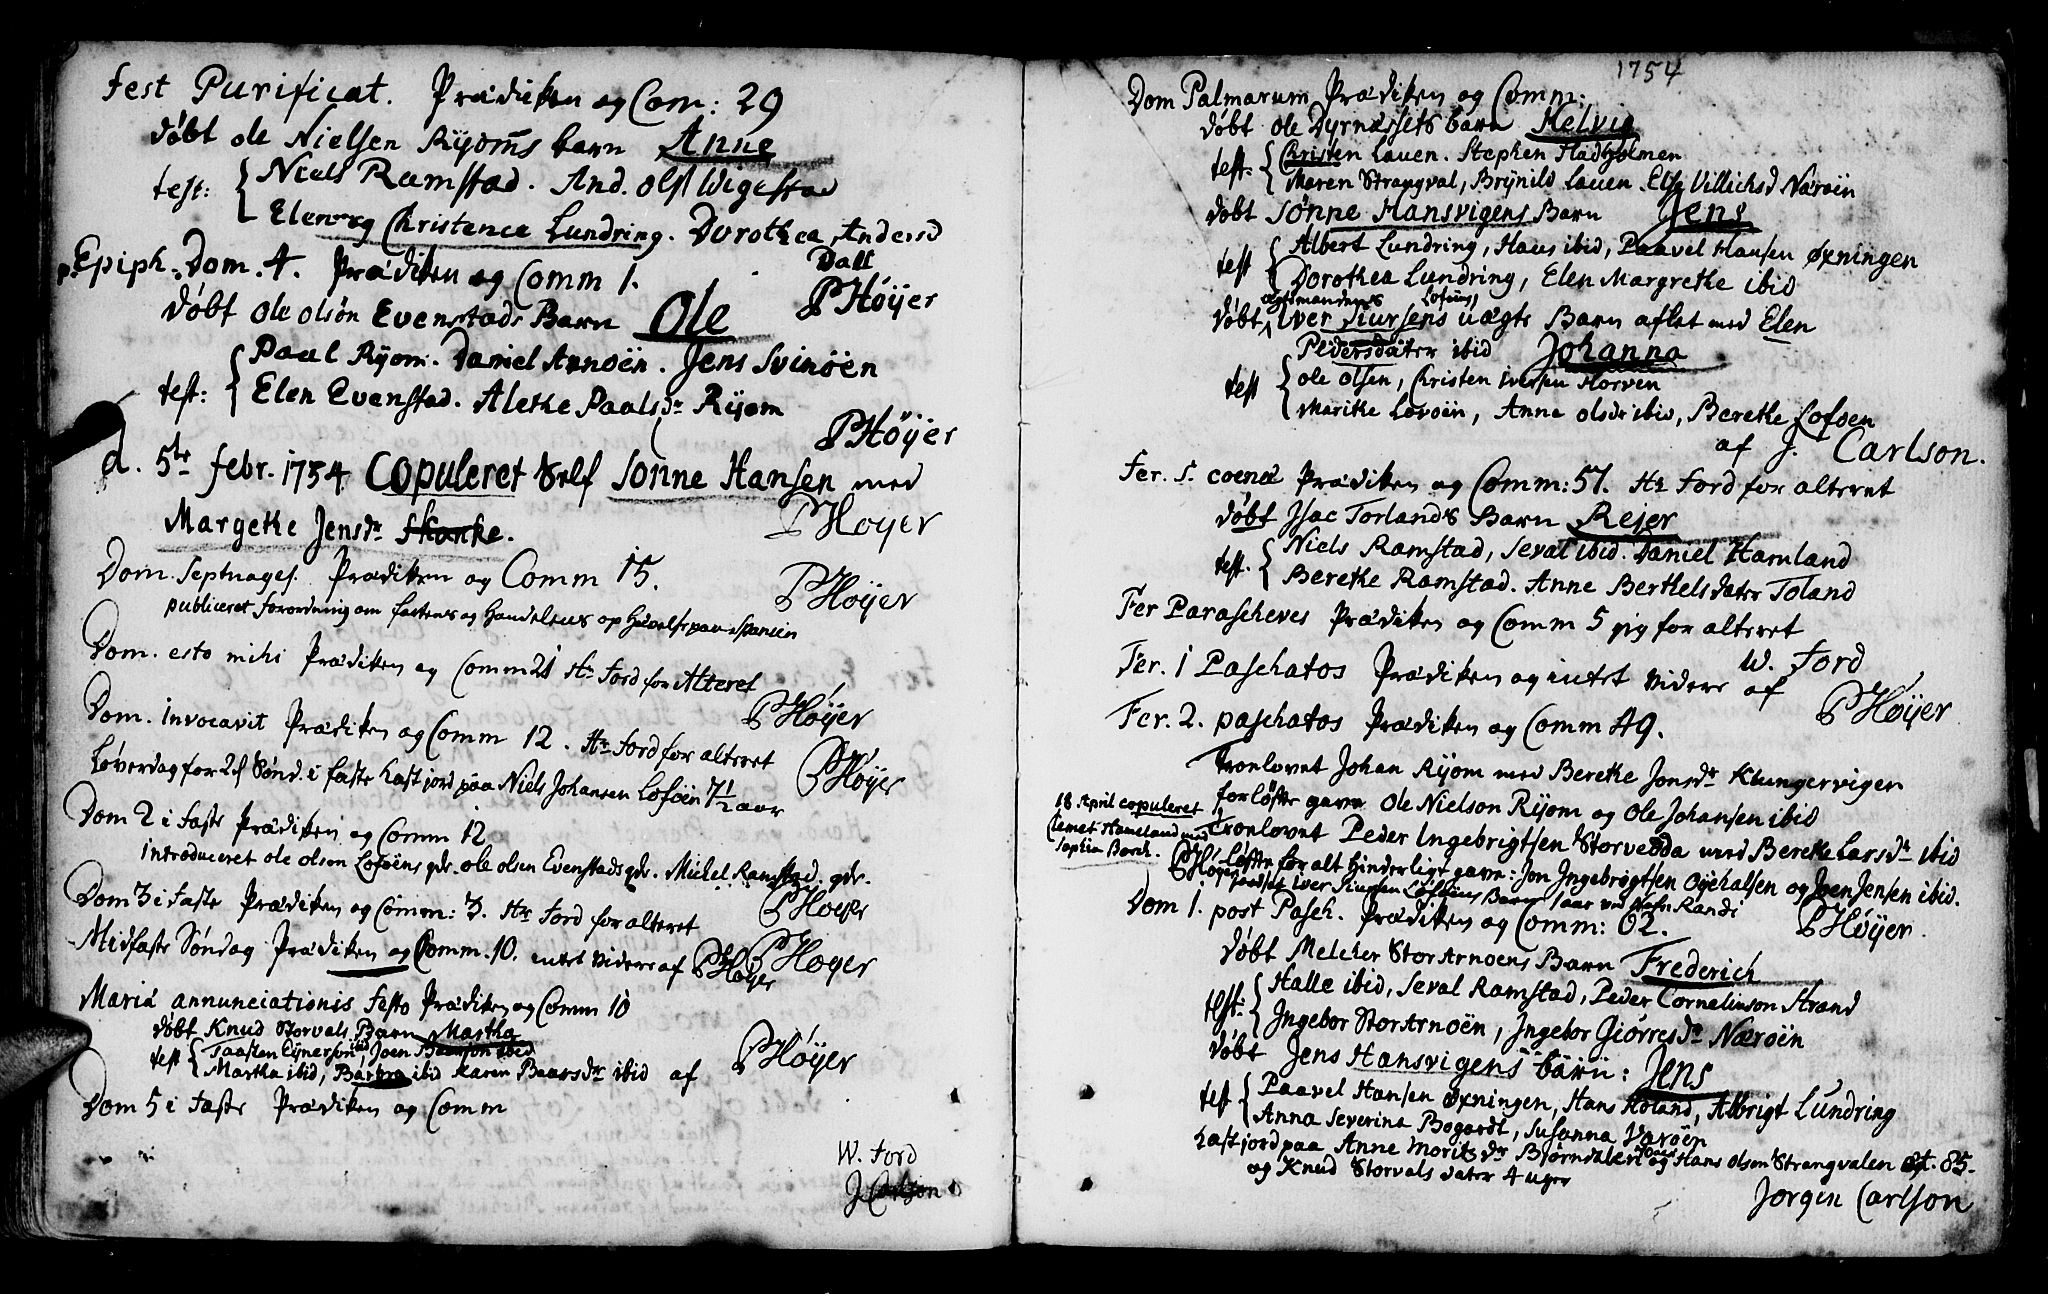 Fest Purificat. Prædiken og Com: 29
døbt ole Nielsen Ryoms barn Anne
test: Niels Ramstad. And. Olss Wigestad
Elen og Christence Lundring. Dorothea Andersd
Dall
p. Epiph. Dom. 4. Prædiken og Comm 1.
PHøyer
døbt ole olsøn Evenstads Barn Ole
Paul Ryom. Daniel Arnøen. Jens Svinøen
test: Elen Evenstad. Aletke Paalsdr Ryom
PHøyer
d. 5te febr. 1754 Copuleret Self Sønne Hansen med
Margetke Jensdr Skanke.
PHøyer
Dom. Septuages. Prædiken og Comm 15.
PHøyer
publiceret forordning om fastens og Handelens ophævelse paa Spanien
Dom. esto mihi Prædiken og Comm 21 Hr Ford for Alteret
PHøyer
Dom. invocavit Prædiken og Comm 12. Hr Ford for alteret
PHøyer
Løverdag for 2d Sønd. i faste kast jord paa Niels Johansen Loføen 7½ aar
Dom 2 i Faste Prædiken og Comm 12
introduceret ole olsen Loføens qdr. ole olsen Evenstads qdr. Michel Ramstad. qdr.
PHøyer
Dom 3 i Faste Prædiken og Comm: 3. Hr Ford for alteret
PHøyer
Midfaste Søndag Prædiken og Comm. 10. intet videre af PHøyer
Mariæ annunciationis festo Prædiken og Comm 10
døbt Knud Storvals Barn Martha
test Taasten Ejnerson ibid, Joen Baarson ibid
Martha ibid, Barbra ibid Karen Baarsdr ibid af
PHøyer
Dom 5 i Faste Prædiken og Comm
W. Ford
J Carlson
1754
Dom Palmarum Prædiken og Comm:
døbt ole Dyrnæssets barn Helvig
test: Christen Lauen. Stephen Hadholmen
Maren Strangval, Brynild Lauen. Else Villichsd Nærøen
døbt Sønne Hansvigens Barn Jens
test Albert Lundring, Hans ibid, Paavel Hansen Øxningen
Dorothea Lundring, Elen Margretke ibid
ægtemandens Loføens
døbt Iver Siursens uægte Barn aflet med Elen
Pedersdater ibid Johanna
test ole olsen, Christen Iversen Horven
Maritke Lovøen, Anne olsdr ibid, Beretke Loføen
af J. Carlson.
Fer. S. coenæ Prædiken og Comm: 57. Hr Ford for alteret
døbt Isac Torlands Barn Rejer
test. Niels Ramstad, Seval ibid. Daniel Hamland
Beretke Ramstad. Anne Berthelsdater Toland
Fer Parascheves Prædiken og Comm 5 jeg for alteret
W. Ford
Fer. 1 Paschatos Prædiken og intet videre af
PHøyer
Fer. 2. paschatos Prædiken og Comm 49.
Tronlovet Johan Ryom med Beretke Jonsdr Klungervigen
forløfte gavn Ole Nielson Ryom og Ole Johansen ibid
18 April copuleret
Clemet Hameland med
Sophia Borch.
PHøyer
Tronlovet Peder Ingebrigtsen Storvedda med Beretke Larsdr ibid
løfte for alt hinderligt gavn: Jon Ingebrigtsen Øyehalsen og Joen Jensen ibid.
jordset Iver Siursen Loføens Barn 1 aar ved Nafn Randi
PHøyer.
Dom 1. post Pasch. Prædiken og Comm: 62.
døbt Melcher Storarnøens Barn Frederich
test: Halle ibid, Seval Ramstad, Peder Corneliuson Strand
Ingebor Storarnøen, Ingebor Giørresdr Nærøen
døbt Jens Hansvigens barn: Jens
test Paavel Hansen Øxningen, Hans Holand, Albrigt Lundring
Anna Severina Bogardt, Susanna Varøen
kast jord paa Anne Moritsdr Bjørndalen og Hans olsen Strangvalen æt. 85.
og Knud Storvals dater 4 uger
Jørgen Carlson